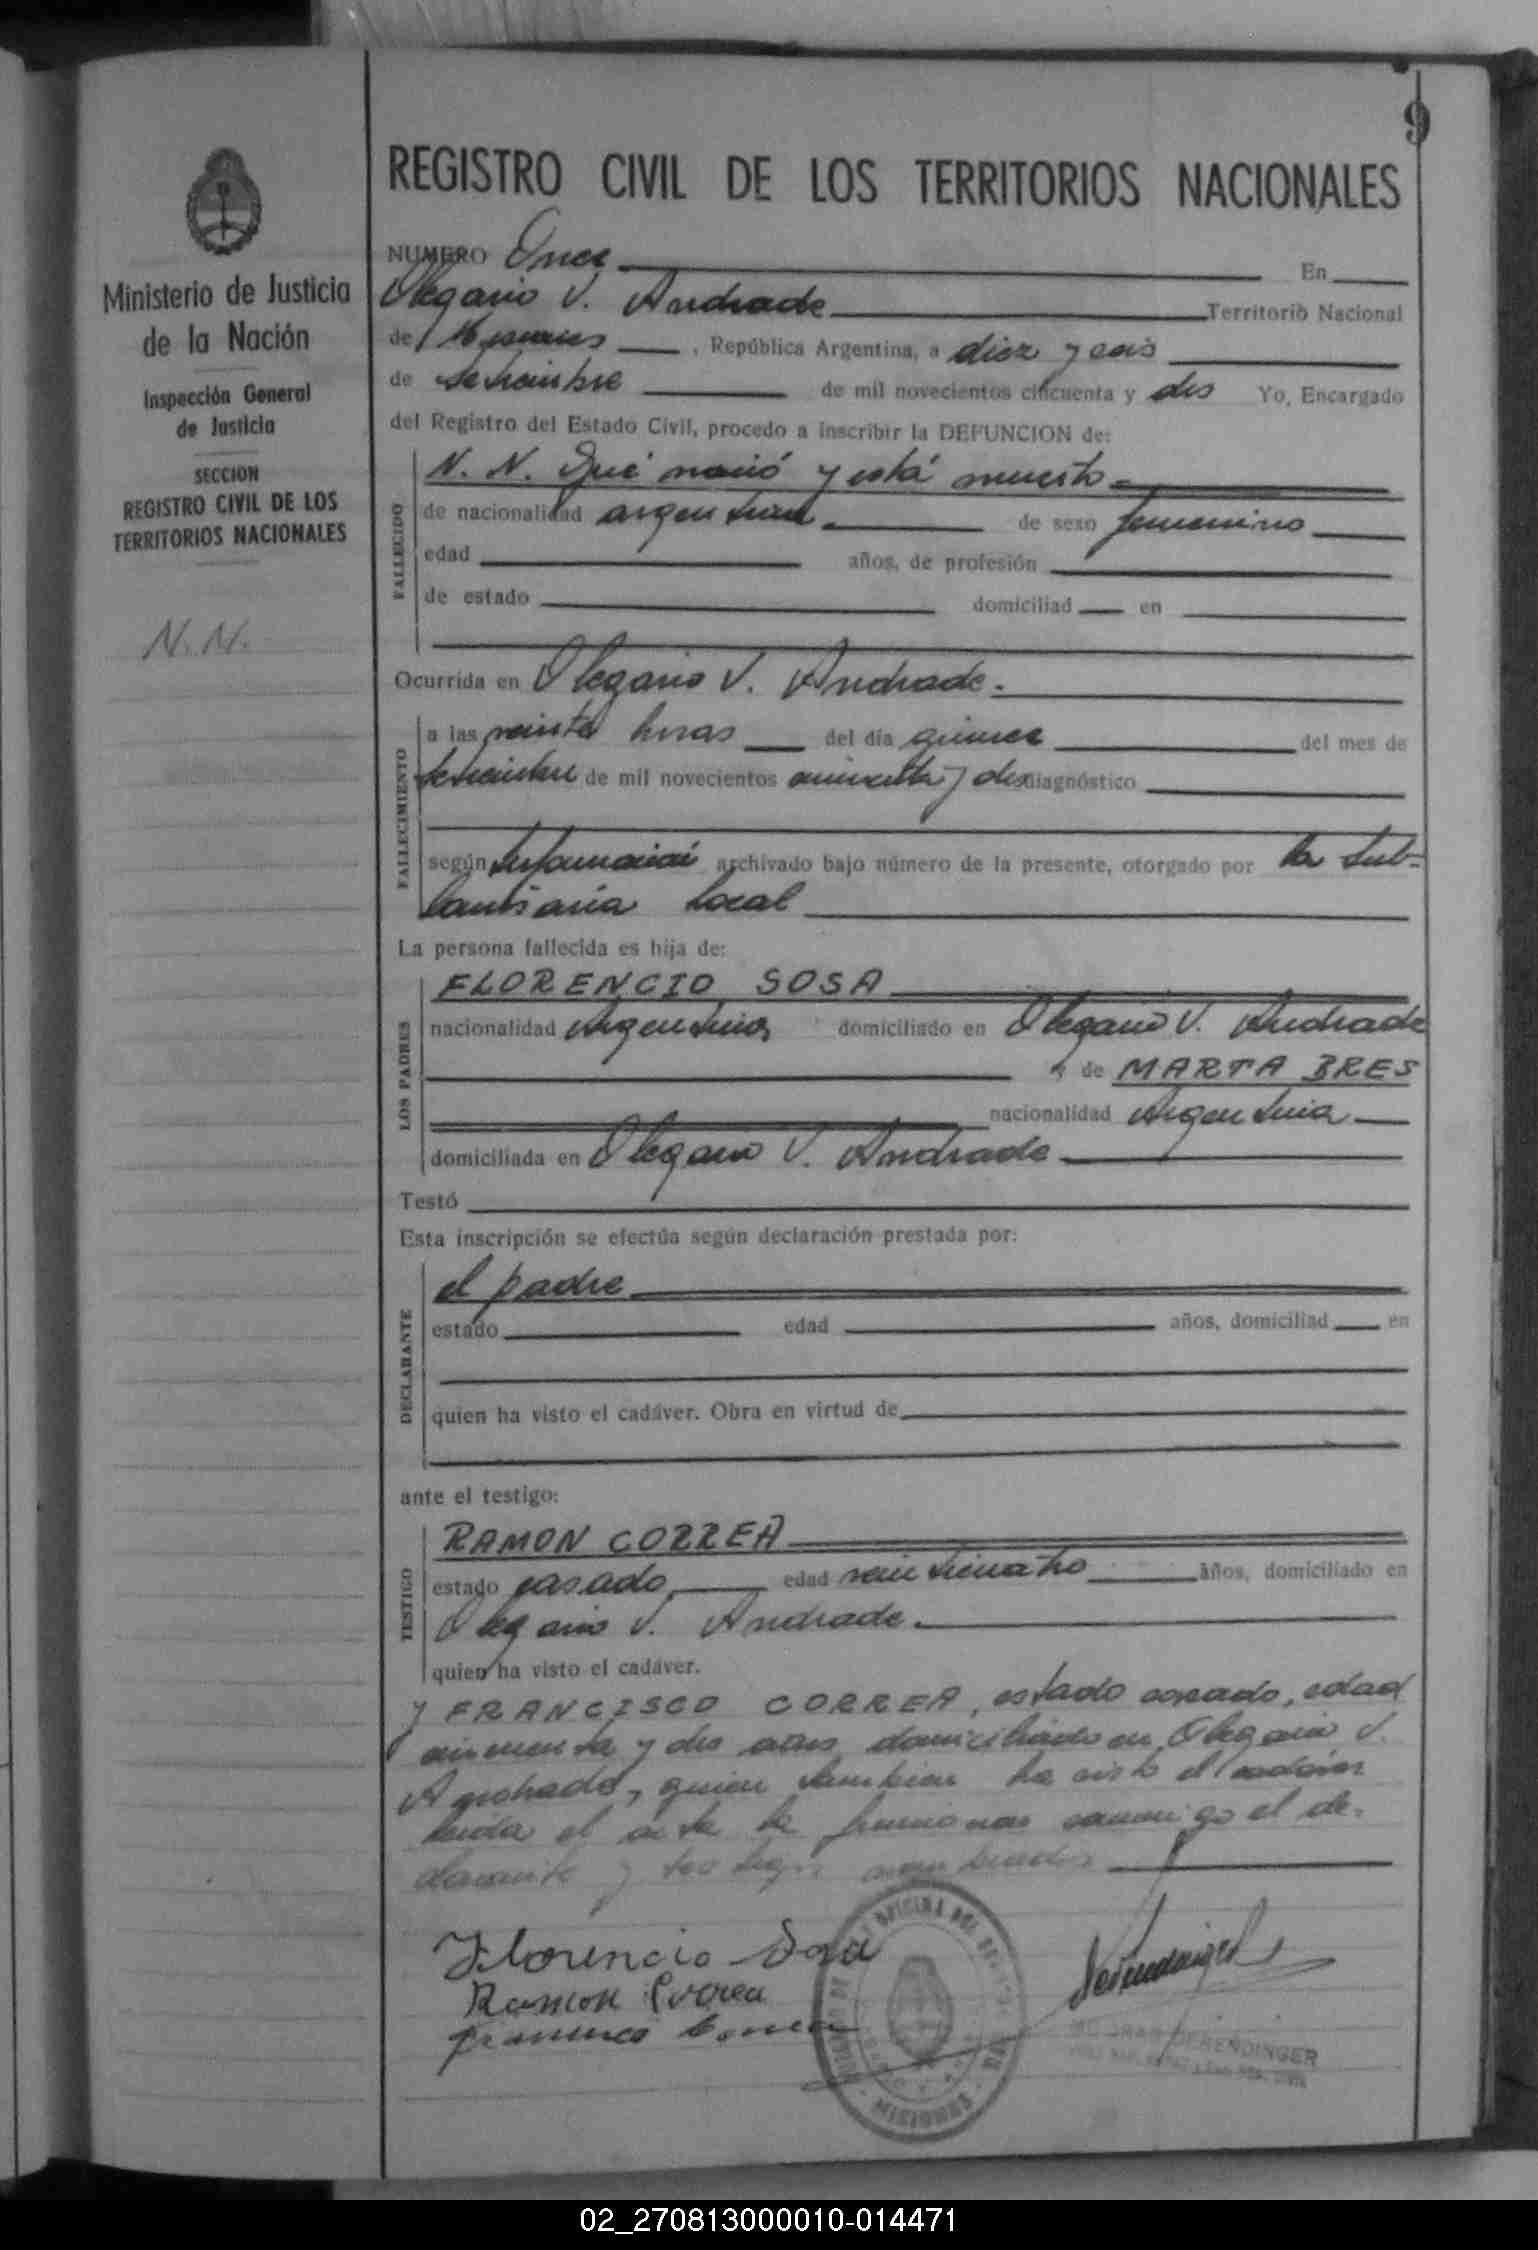 9
REGISTRO CIVIL DE LOS TERRITORIOS NACIONALES
Ministerio de Justicia
de la Nación
Inspección General
de Justicia
SECCION
REGISTRO CIVIL DE LOS
TERRITORIOS NACIONALES
N. N.
NUMERO Once En
Olegario V. Andrade Territorio Nacional
de Misiones, República Argentina, a diez y seis
de setiembre de mil novecientos cincuenta y dos Yo, Encargado
del Registro del Estado Civil, procedo a inscribir la DEFUNCION de:
FALLECIDO
N. N. Qué nació y está muerto
de nacionalidad argentina de sexo femenino
edad años, de profesión
de estado domiciliad en
Ocurrida en Olegario V. Andrade.
FALLECIMIENTO
a las veinte horas del día quince del mes de
setiembre de mil novecientos cincuenta y dos diagnóstico
según información archivado bajo número de la presente, otorgado por la Sub-
Comisaría local
La persona fallecida es hija de:
LOS PADRES
FLORENCIO SOSA
nacionalidad Argentina domiciliado en Olegario V. Andrade
y de MARTA BRES
nacionalidad Argentina
domiciliada en Olegario V. Andrade
Testó
Esta inscripción se efectúa según declaración prestada por:
DECLARANTE
el padre
estado edad años, domiciliad en
quien ha visto el cadáver. Obra en virtud de
ante el testigo:
TESTIGO
RAMON CORREA
estado casado edad veinticuatro años, domiciliado en
Olegario V. Andrade.
quien ha visto el cadáver.
y FRANCISCO CORREA, estado casado, edad
cincuenta y dos años domiciliado en Olegario V.
Andrade, quien tambien ha visto el cadáver
leida el acta la firmaron conmigo el de-
clarante y testigos nombrados
Florencio Sosa
Ramon Correa
Francisco Correa
OFICINA DEL
MISIONES
DERENDINGER
02_270813000010-014471